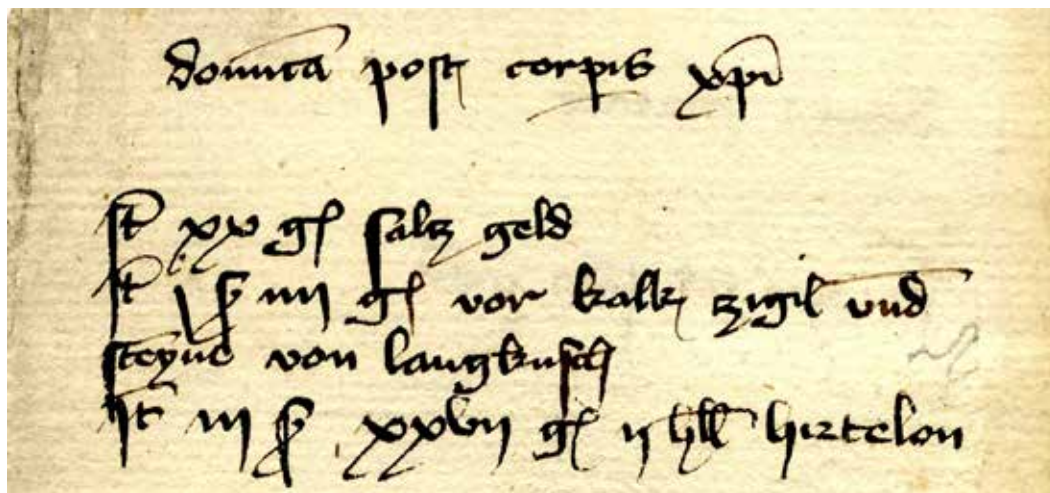 domica post corpis xpi
It xx gr salcz geld
It j ß iiij gr vor kalk zigil vnd
steyne von langkusch
It iij ß xxvij gr ij hll hirtelon